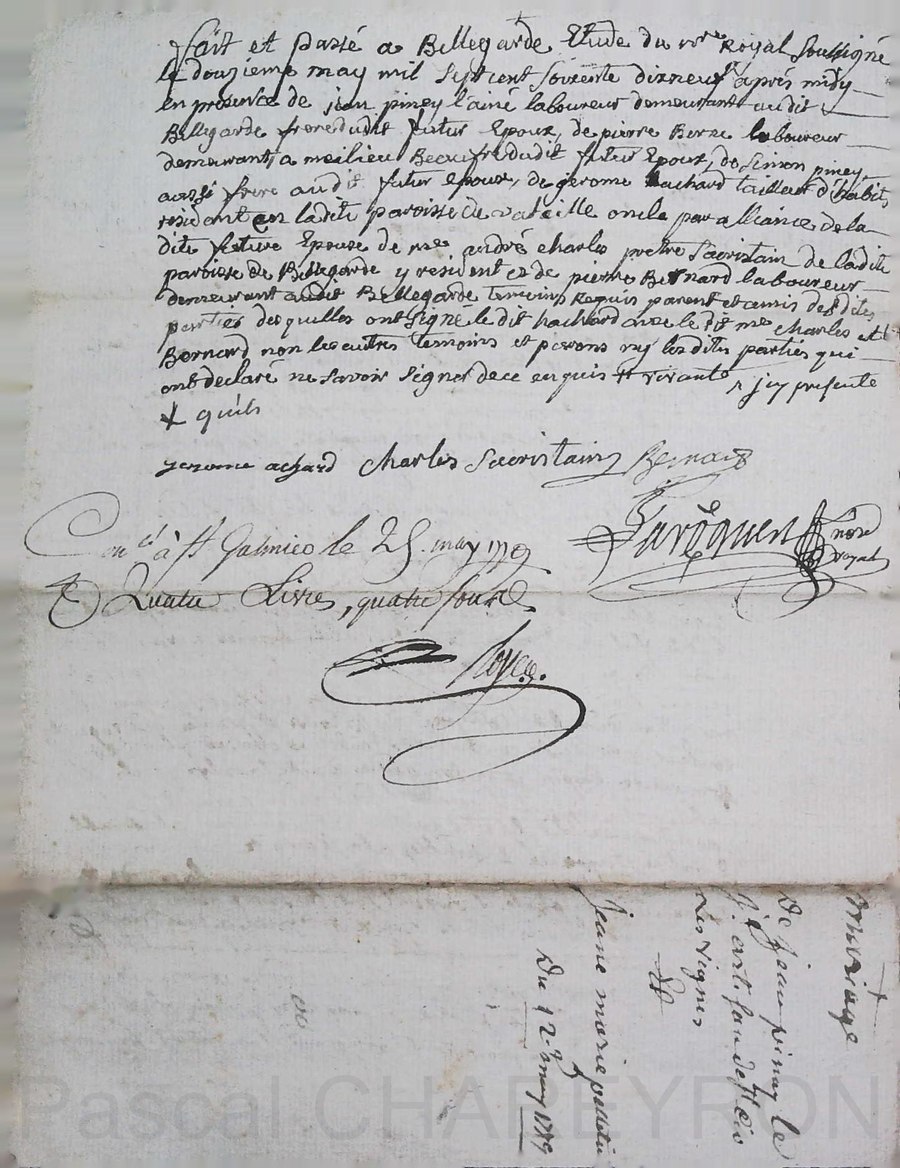 fait et passé a Bellegarde Etude du nre Royal soussigné
le douzieme may mil septcent soixente dixneuf après midy
en presence de jean piney l'ainé laboureur demeurant audit
Bellegarde frere dudit futur Epoux, de pierre Berne laboureur
demeurant a meilieu Beaufrere dudit futur Epoux, de Simon piney
aussi frere audit futur epoux, de jerome hachard tailleur d'habits
residant en ladite paroisse de vateille oncle par alliance de la
dite future Epouse de mre andré charles pretre Sacristain de ladite
paroisse de Bellegarde y resident et de pierre Bernard laboureur
demeurant audit Bellegarde temoins Requis parent et amis desdites
parties desquelles ont signé le dit hachard avec le dit mre charles et
Bernard non les autres temoins et lesdites parties qui
ont declaré ne savoir signer de ce enquis
+ quils
jerome achard Charles Sacristain Bernard
nore
royal
Con.lé à St Galmier le 25 may 1779
Quatre Livres, quatre sous
mariage
De jean pinay le
Les vignes
jeanne marie
Du 12e may 1779
Pascal CHAREYRON